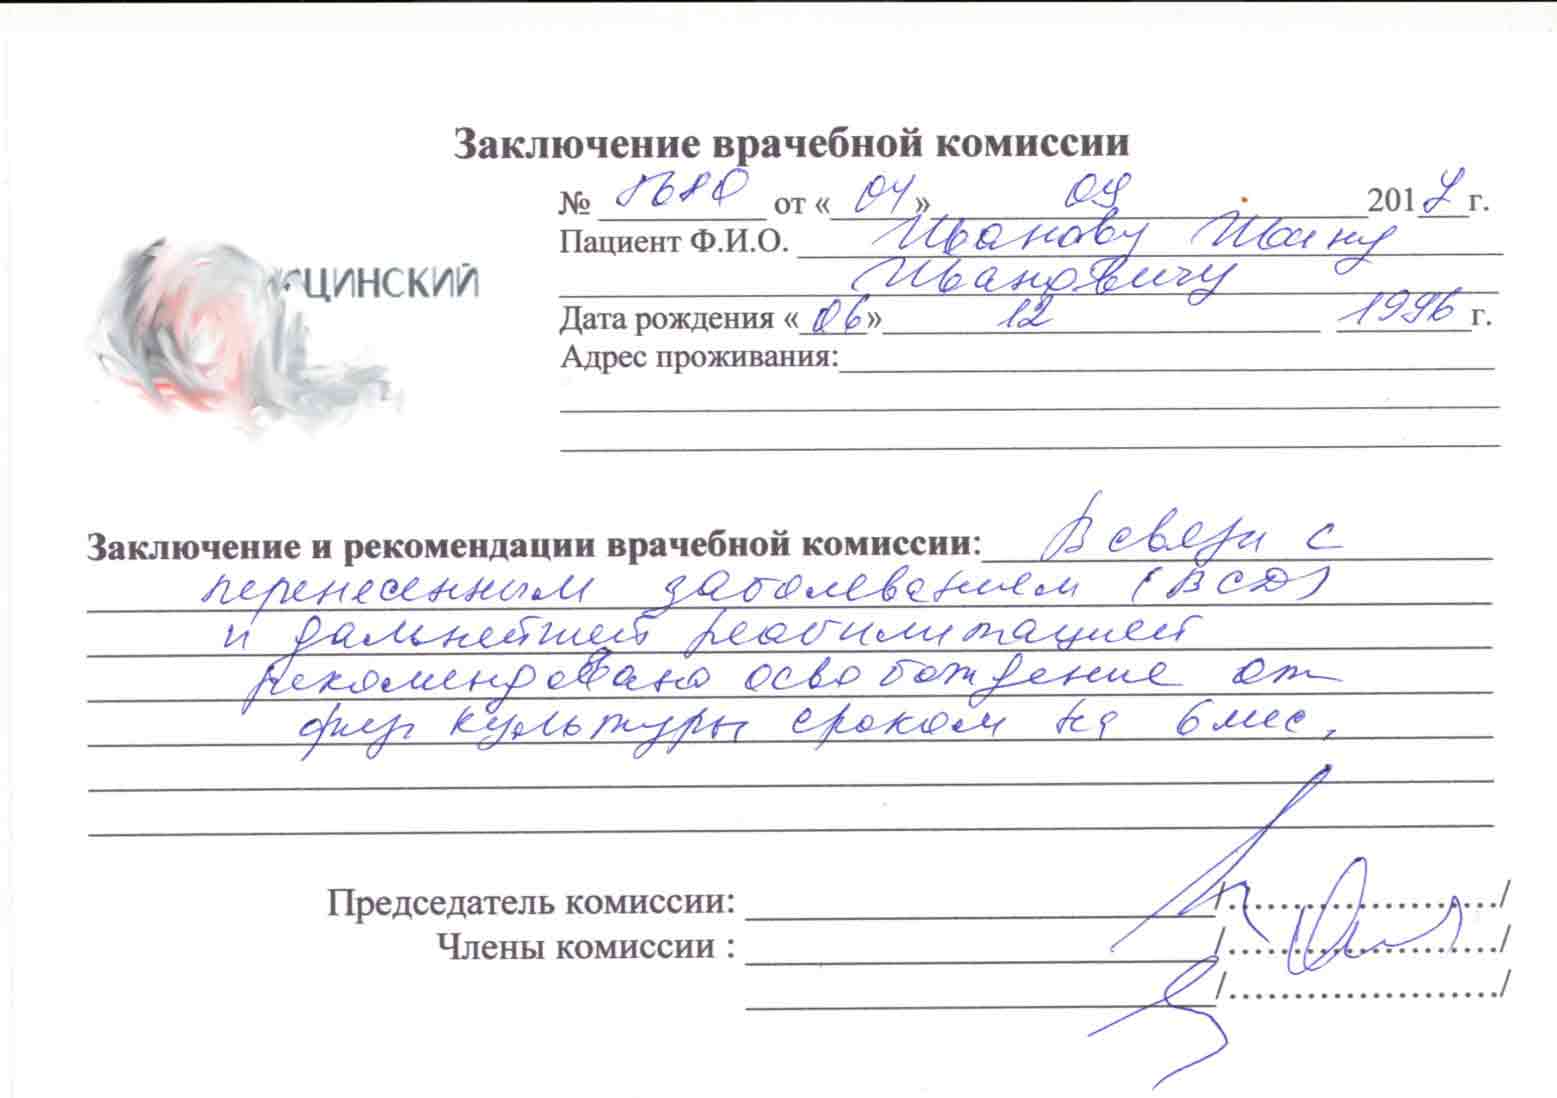 Заключение врачебной комиссии
№ 1680 от «04» 09 2017 г.
Пациент Ф.И.О. Иванову Ивану
Ивановичу
ЦИНСКИЙ
Дата рождения «06» 12 1996 г.
Адрес проживания:
Заключение и рекомендации врачебной комиссии: В связи с
перенесенным заболеванием (ВСД)
и дальнейшей реабилитацией
рекомендовано освобождение от
физ культуры сроком на 6 мес.
Председатель комиссии: /...................../
Члены комиссии : /...................../
/...................../